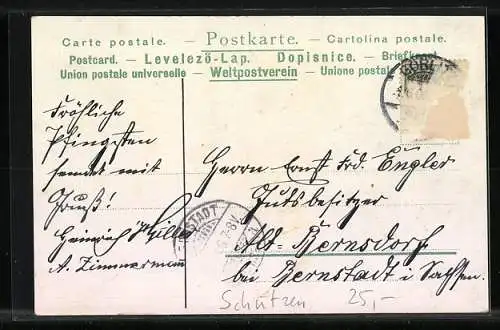 Carte postale. — Postkarte. — Cartolina postale.
Postcard. — Levelezö-Lap. — Dopisnice. — Briefkaart.
Union postale universelle — Weltpostverein — Unione postal
Fröhliche
Pfingsten
sendet mit
Gruß!
Heinrich
A. Zimmermann
Herrn Ernst Frd. Engler
Gutsbesitzer
Alt-Bernsdorf
bei Bernstadt i Sachsen.
STADT
Schützen 25,-